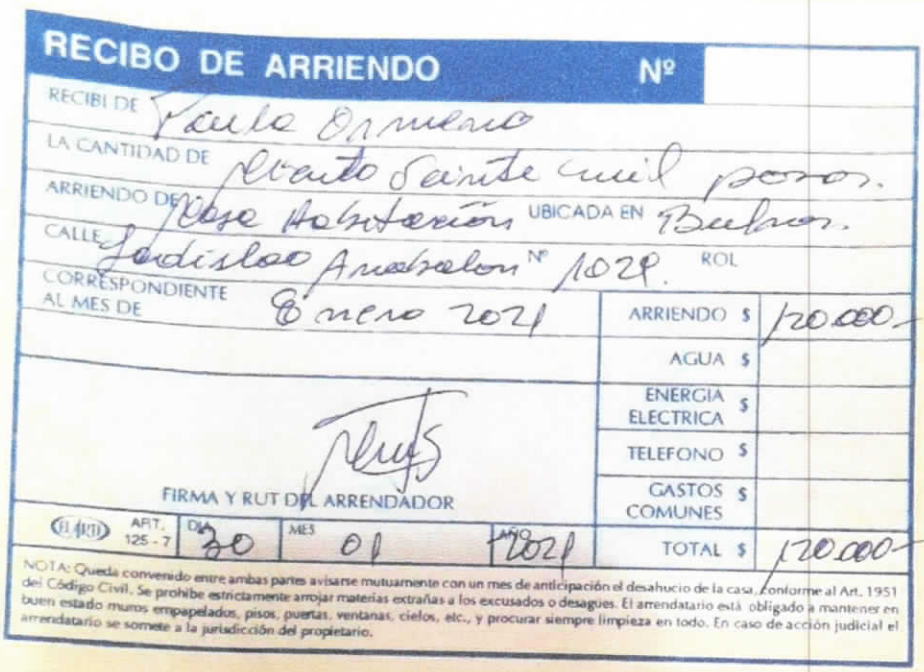 RECIBO DE ARRIENDO Nº
RECIBI DE Paula Ormeno
LA CANTIDAD DE Ciento Veinte mil pesos.
ARRIENDO DE Casa Habitación UBICADA EN Bulnes.
CALLE Ladislao Anabalon Nº 1029. ROL
CORRESPONDIENTE AL MES DE Enero 2021
ARRIENDO $ 120.000-
AGUA $
ENERGIA ELECTRICA $
TELEFONO $
GASTOS COMUNES $
FIRMA Y RUT DEL ARRENDADOR
EL ARTE ART. 125 - 7 DIA 30 MES 01 AÑO 2021 TOTAL $ 120.000-
NOTA: Queda convenido entre ambas partes avisarse mutuamente con un mes de anticipación el desahucio de la casa, conforme al Art. 1951
del Código Civil. Se prohibe estrictamente arrojar materias extrañas a los excusados o desagües. El arrendatario está obligado a mantener en
buen estado muros empapelados, pisos, puertas, ventanas, cielos, etc., y procurar siempre limpieza en todo. En caso de acción judicial el
arrendatario se somete a la jurisdicción del propietario.